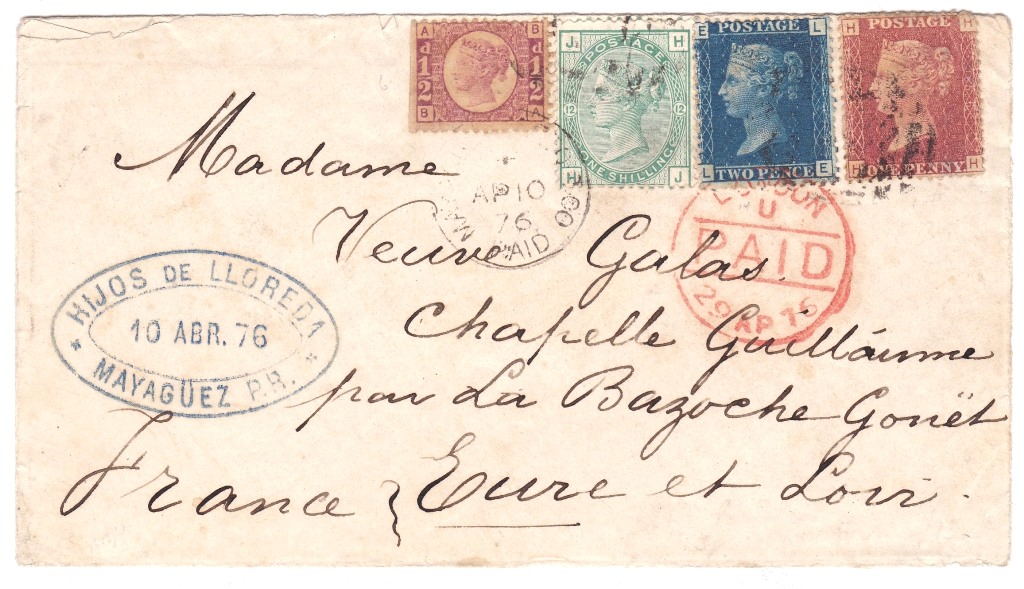 A B
d ½ d ½
B A
J H
POSTAGE
12 12
ONE SHILLING
H J
E POSTAGE L
L TWO PENCE E
H POSTAGE H
H ONE PENNY H
AP 10
76
PAID
LONDON
U
PAID
29 AP 76
HIJOS DE LLOREDA
10 ABR. 76
* MAYAGÜEZ P.R. *
Madame
Veuve Galas
Chapelle Guillaume
par La Bazoche Gouët
France } Eure et Loir.